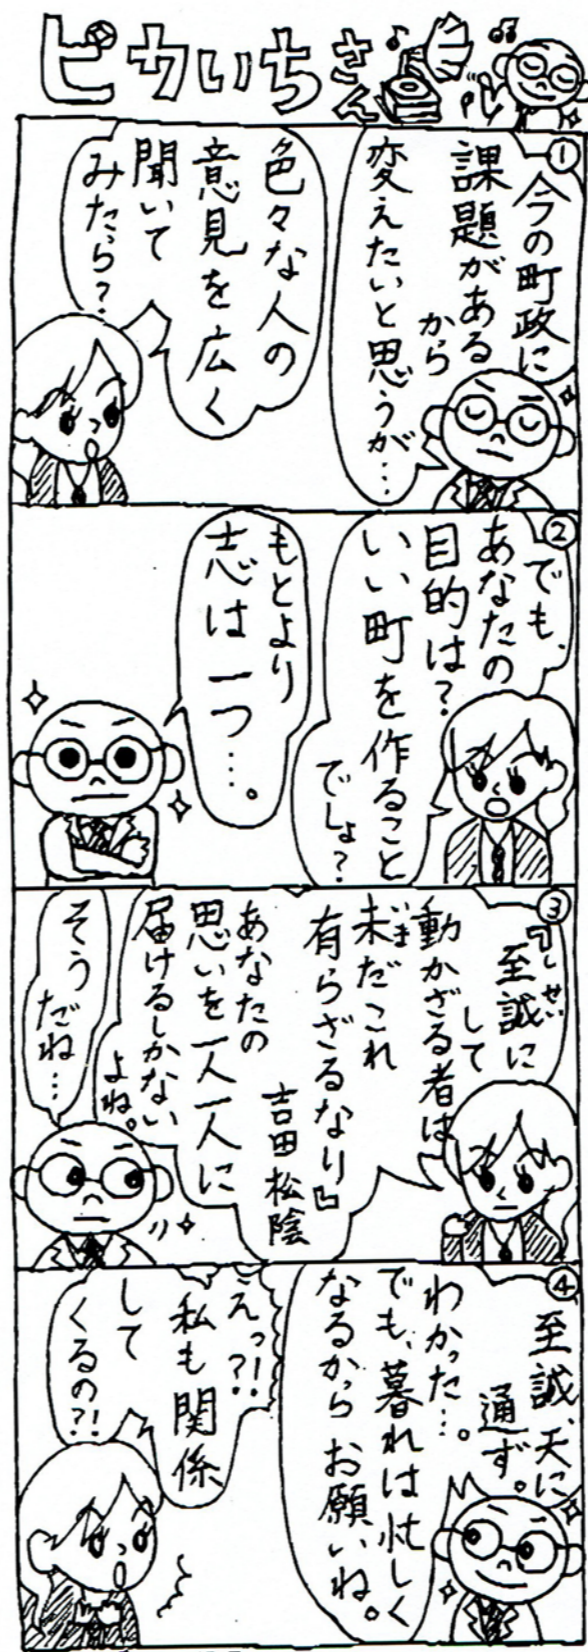 ピカいちさん
①今の町政に
課題がある
から
変えたいと思うが…
色々な人の
意見を広く
聞いて
みたら?
②でも、
あなたの
目的は?
いい町を作ること
でしょ?
もとより
志は一つ…。
③『至誠に
しせい
して
動かざる者は
未だこれ
いま
有らざるなり』
吉田松陰
あなたの
思いを一人一人に
届けるしかない
よね。
そう
だね…
④至誠、天に
通ず。
わかった…。
でも、暮れは忙しく
なるからお願いね。
えっ?!
私も関係
して
くるの?!